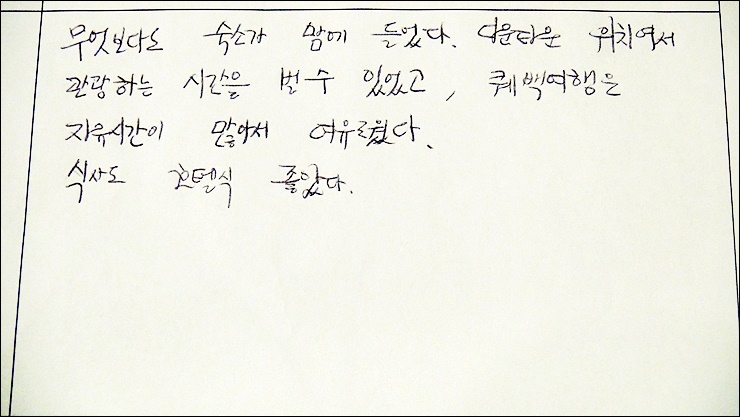 무엇보다도 숙소가 맘에 들었다. 다운타운 위치여서
관광하는 시간을 벌 수 있었고, 퀘백여행은
자유시간이 많아서 여유로웠다.
식사도 호텔식 좋았다.